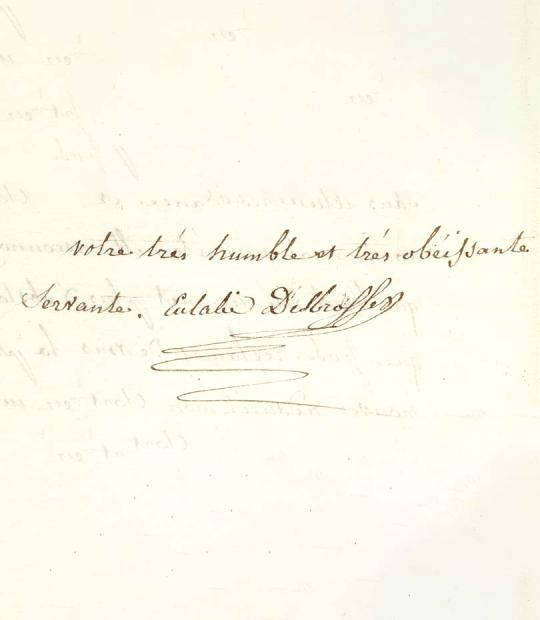 votre trés humble et trés obéissante
Servante. Eulalie Desbrosses